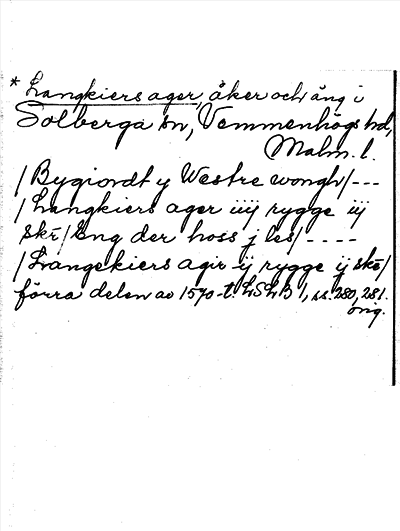 * Langkiers ager, åker och äng i
Solberga sn, Vemmenhögs hd,
Malm. l.
/Bygiordt y Westre wongh/---
/Langkiers ager iiij rygge iij
skr/Eng der hoss j les/----
/Langekiers agir ij rygge ij skr/
förra delen av 1570-t. LSLB 1, ss. 280, 281.
orig.